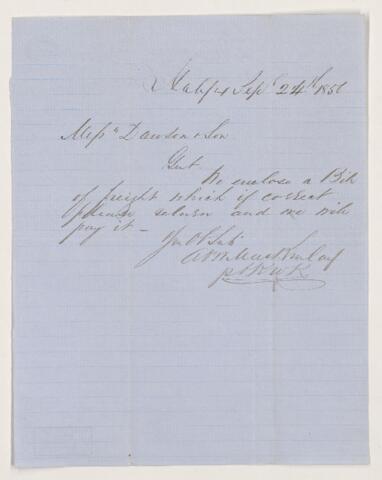 Halifax Sepr 24th 1856
Messrs Dawson & Son
Gent
We enclose a Bill
of freight which if correct
please return and we will
pay it —
Your Ob Sts